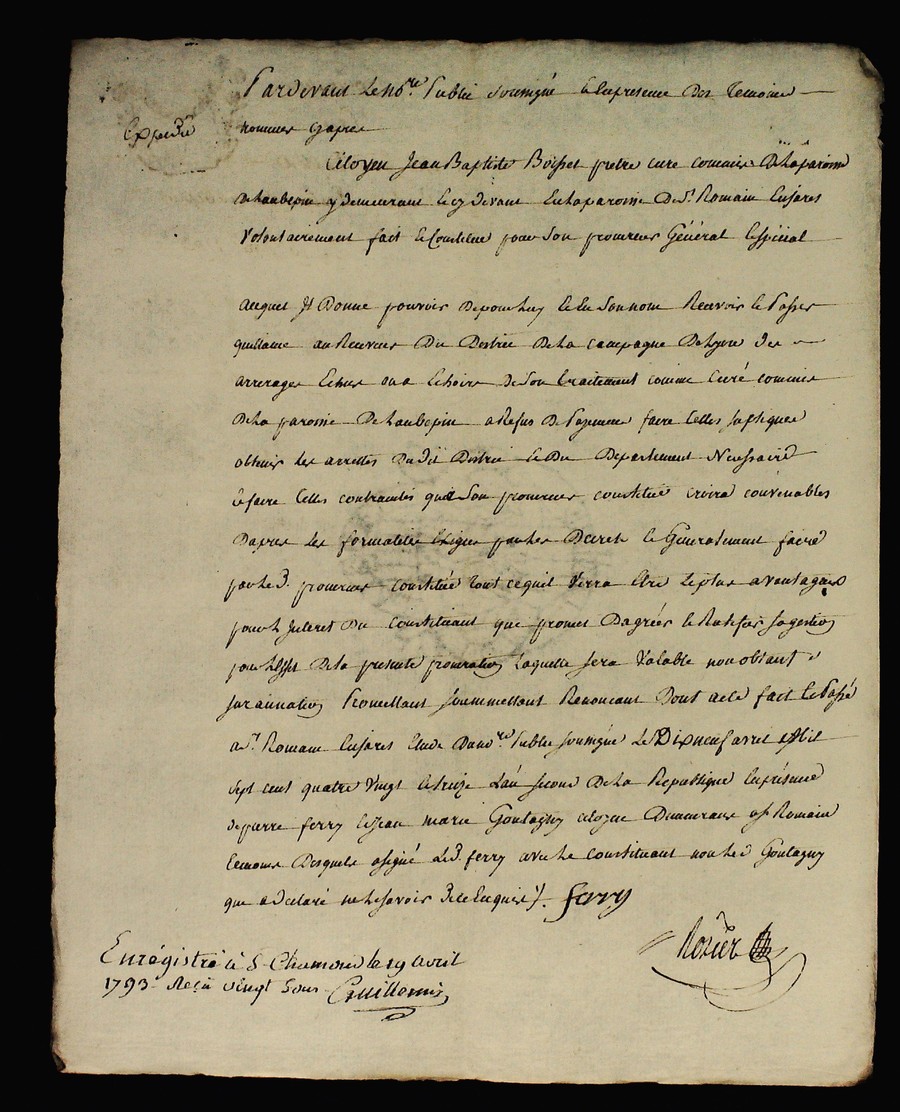 Pardevant Le no.re Public soussigné & En presence Des temoins
Expedié
nommes cy apres
Citoyen Jean Baptiste Boisset pretre curé commis De la paroisse
De Laubepin y demeurant & cy devant En la paroisse De St. Romain En Jares
Volontairement fait & Constitué pour Son procureur Général & special
auquel Il Donne pouvoir De pour luy & En Son nom Recevoir & Passer
quittance au Receveur Du District De La Campagne De Lyon des
arrerages Echus ou a Echoirs de Son traitement comme Curé commis
De la paroisse De Laubepin a Refus De Payement faire telles supliques
obtenir Les arrettes Dudit District & Du Departement Necessaires
& faire telles contraintes que Son procureur constitué croira convenables
Dapres Les formalités Exigees par Les Decrets & Generalement faire
par Le d. procureur constitué tout ce quil Verra Etre Le plus avantageux
pour L Interet Du constituant que promet Dagréer & Ratifier sa gestion
pour Leffet De la presente procuration Laquelle sera Valable nonobstant
surannation Promettant soummettant Renoncant Dont acte fait & Passé
a St. Romain En Jares Etude Du no.re Public soussigné Le Dixneuf avril Mil
sept cent quatre Vingt & treize Lan second De La Republique En présence
de pierre ferry & Jean marie Goutagny citoyens Demeurans a St Romain
temoins Desquels a signé Led. ferry avec Le constituant non Led. Goutagny
que a Declaré ne Le savoir De ce Enquis. ferry
Rozier
Enrégistré à St Chamond le 19 avril
1793. Reçu vingt sous Guillomin